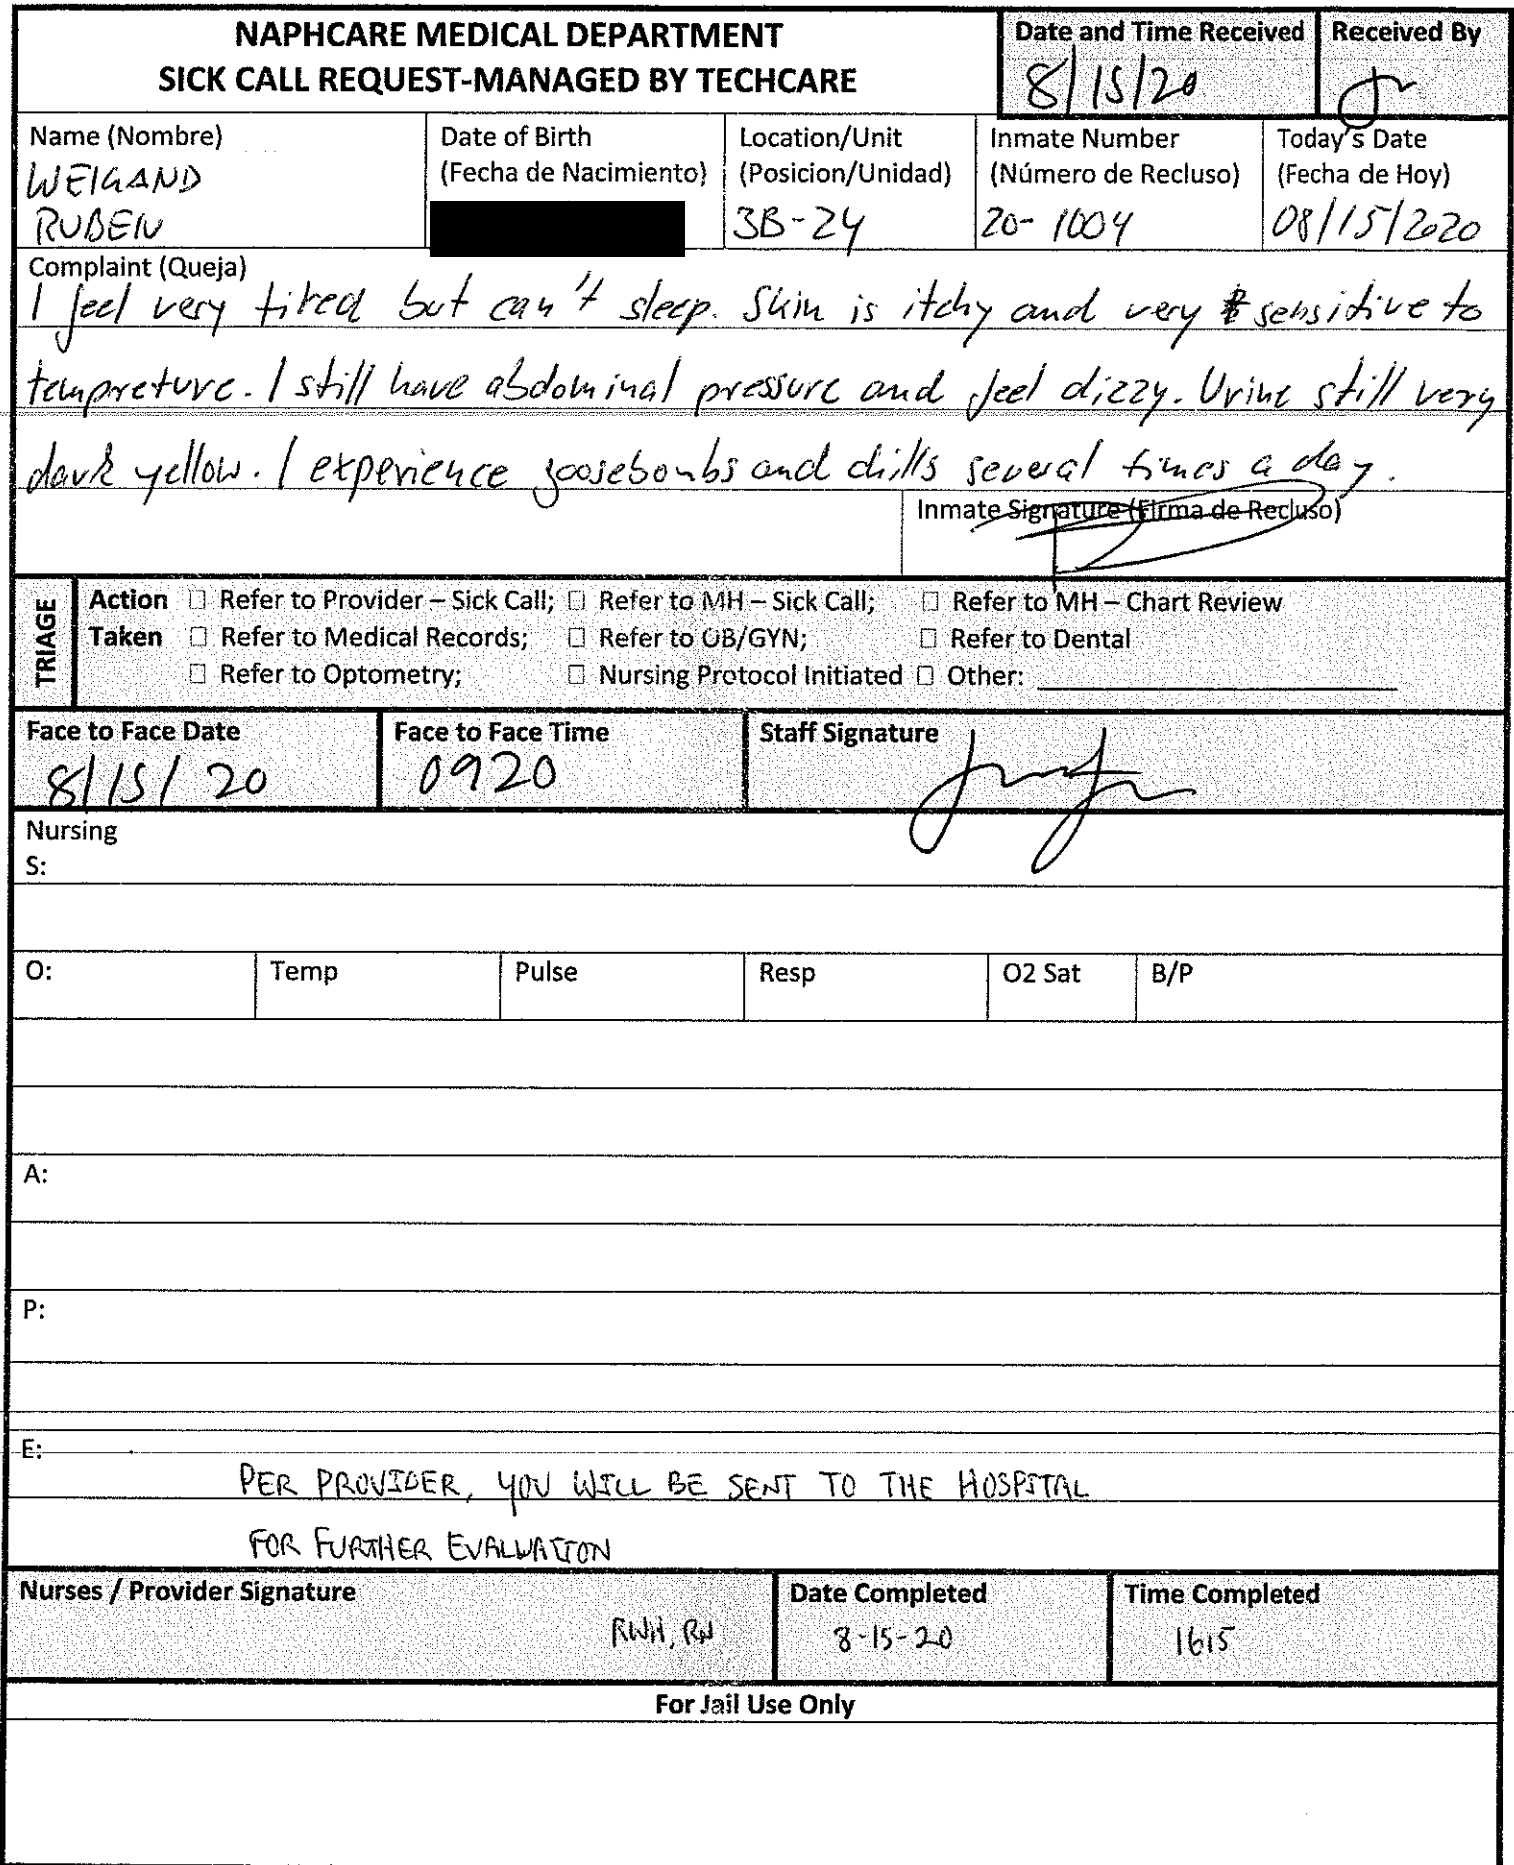 NAPHCARE MEDICAL DEPARTMENT
SICK CALL REQUEST-MANAGED BY TECHCARE
Date and Time Received
8/15/20
Received By
Name (Nombre)
WEIGAND
RUBEN
Date of Birth
(Fecha de Nacimiento)
Location/Unit
(Posicion/Unidad)
3B-24
Inmate Number
(Número de Recluso)
20-1004
Today's Date
(Fecha de Hoy)
08/15/2020
Complaint (Queja)
I feel very tired but can't sleep. Skin is itchy and very sensitive to
tempreture. I still have abdominal pressure and feel dizzy. Urine still very
dark yellow. I experience goosebombs and chills several times a day.
Inmate Signature (Firma de Recluso)
TRIAGE
Action ☐ Refer to Provider – Sick Call; ☐ Refer to MH – Sick Call; ☐ Refer to MH – Chart Review
Taken ☐ Refer to Medical Records; ☐ Refer to OB/GYN; ☐ Refer to Dental
☐ Refer to Optometry; ☐ Nursing Protocol Initiated ☐ Other:
Face to Face Date
8/15/20
Face to Face Time
0920
Staff Signature
Nursing
S:
O: Temp Pulse Resp O2 Sat B/P
A:
P:
E:
PER PROVIDER, YOU WILL BE SENT TO THE HOSPITAL
FOR FURTHER EVALUATION
Nurses / Provider Signature
RWH, RN
Date Completed
8-15-20
Time Completed
1615
For Jail Use Only